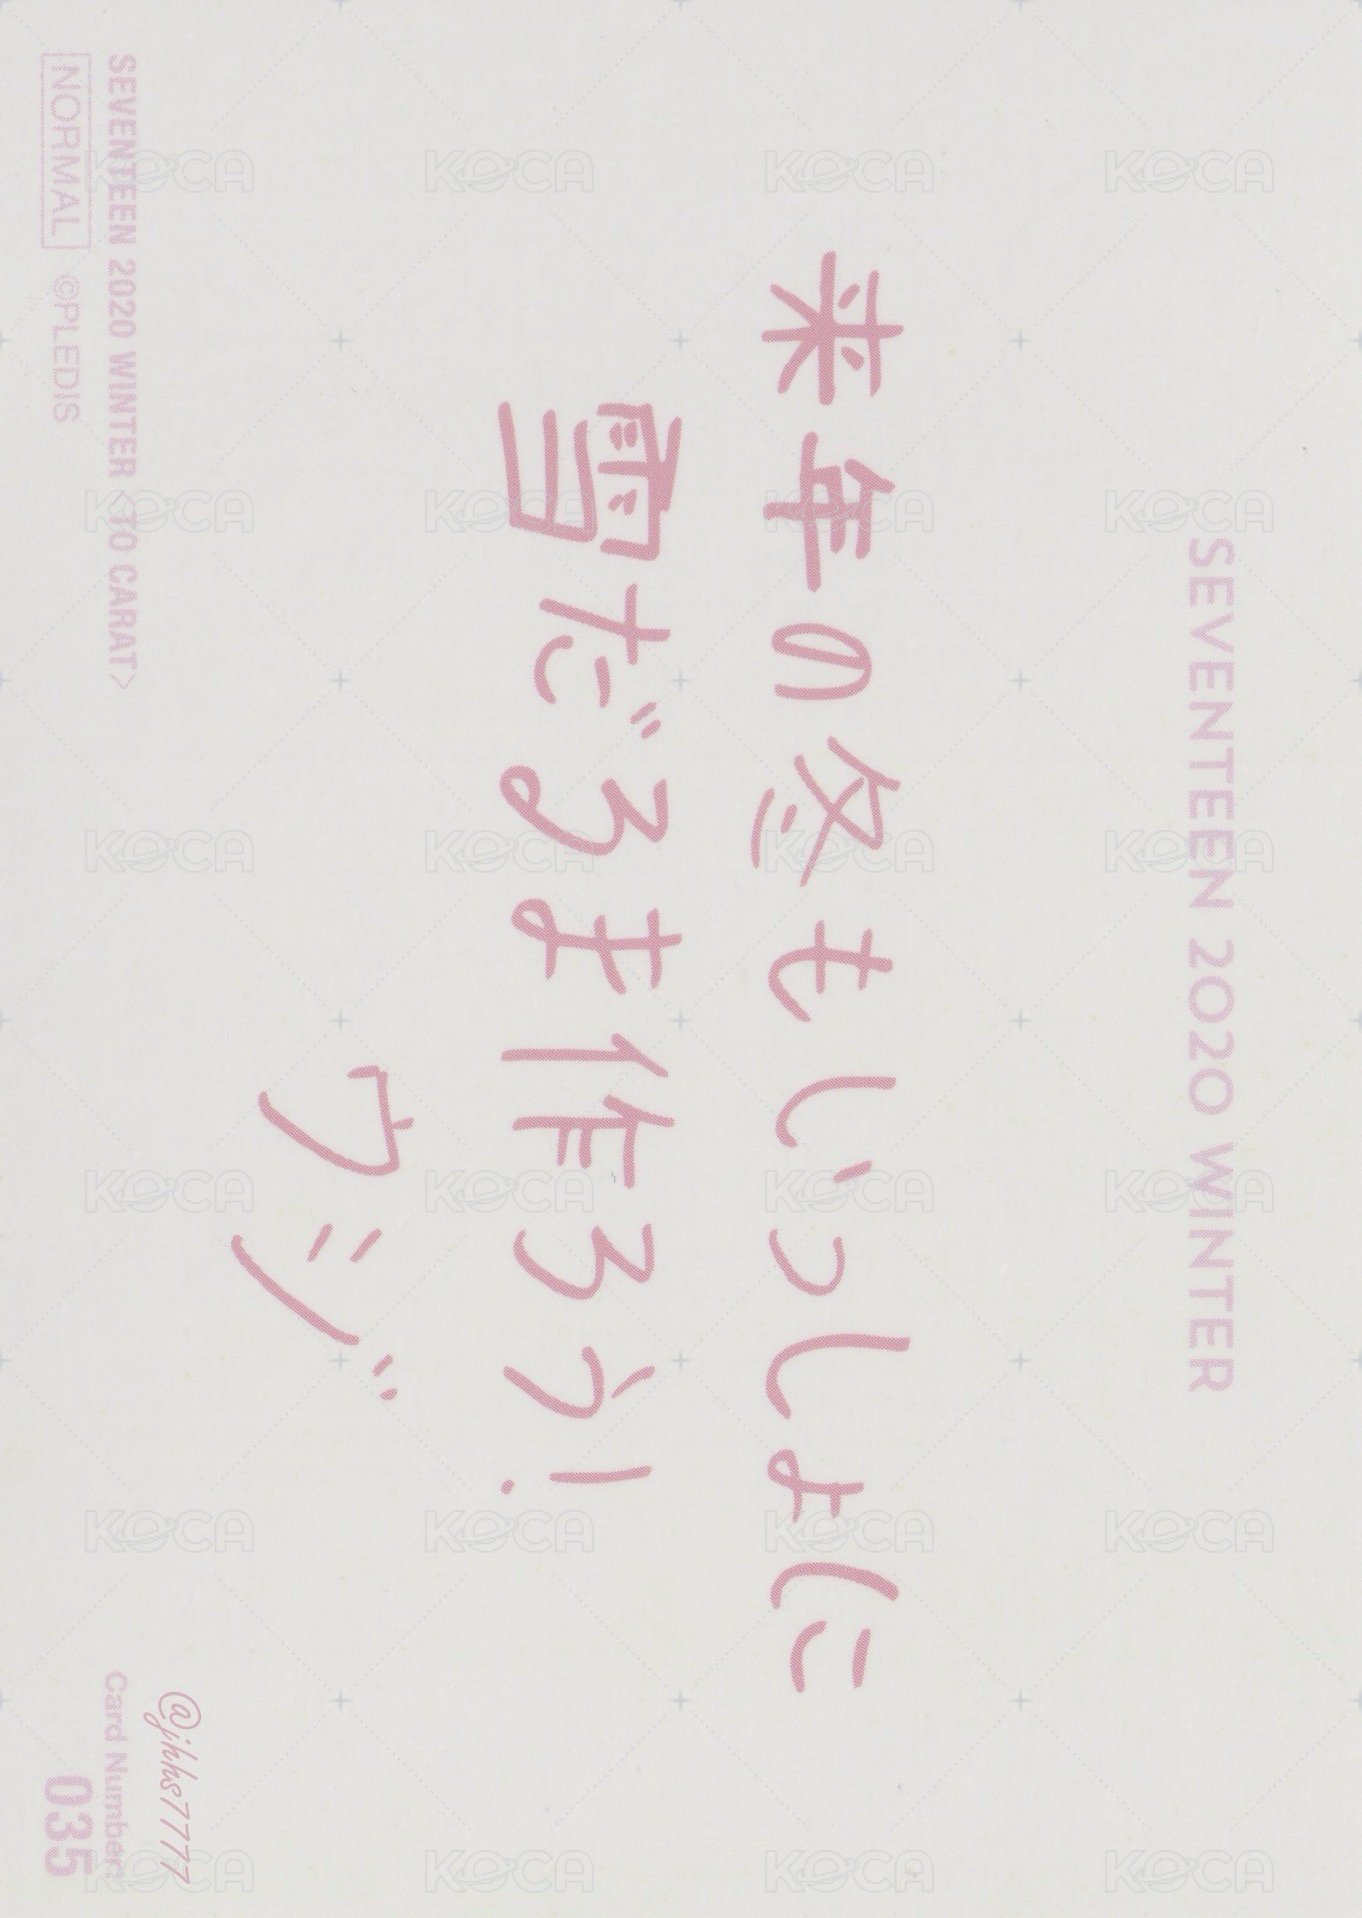 SEVENTEEN 2020 WINTER
来年の冬もいっしょに
雪だるま作ろう!
ウジ
@jhhs7777
SEVENTEEN 2020 WINTER <TO CARAT>
NORMAL ©PLEDIS
Card Number:
035
KOCA KOCA KOCA KOCA
KOCA KOCA KOCA KOCA
KOCA KOCA KOCA KOCA
KOCA KOCA KOCA KOCA
KOCA KOCA KOCA KOCA
KOCA KOCA KOCA KOCA